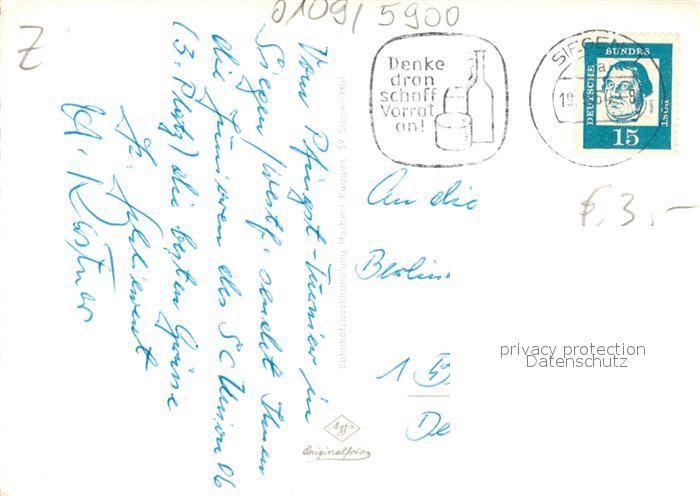 Z
0109/5900
Vom Pfingst-Turnier in
Siegen/Westf. sendet Ihnen
die Junioren des SC Union 06
(3. Platz) die besten Grüsse
H. Kästner
Denke
dran
schaff
Vorrat
an!
SIEGEN
a
19.
8
DEUTSCHE
BUNDES
POST
15
3,-
An die
Berlin
1 B
De
Bahnhofsbuchhandlung Herbert Koggen, 59 Siegen-Hbf
Agfa
Originalfoto
privacy protection
Datenschutz